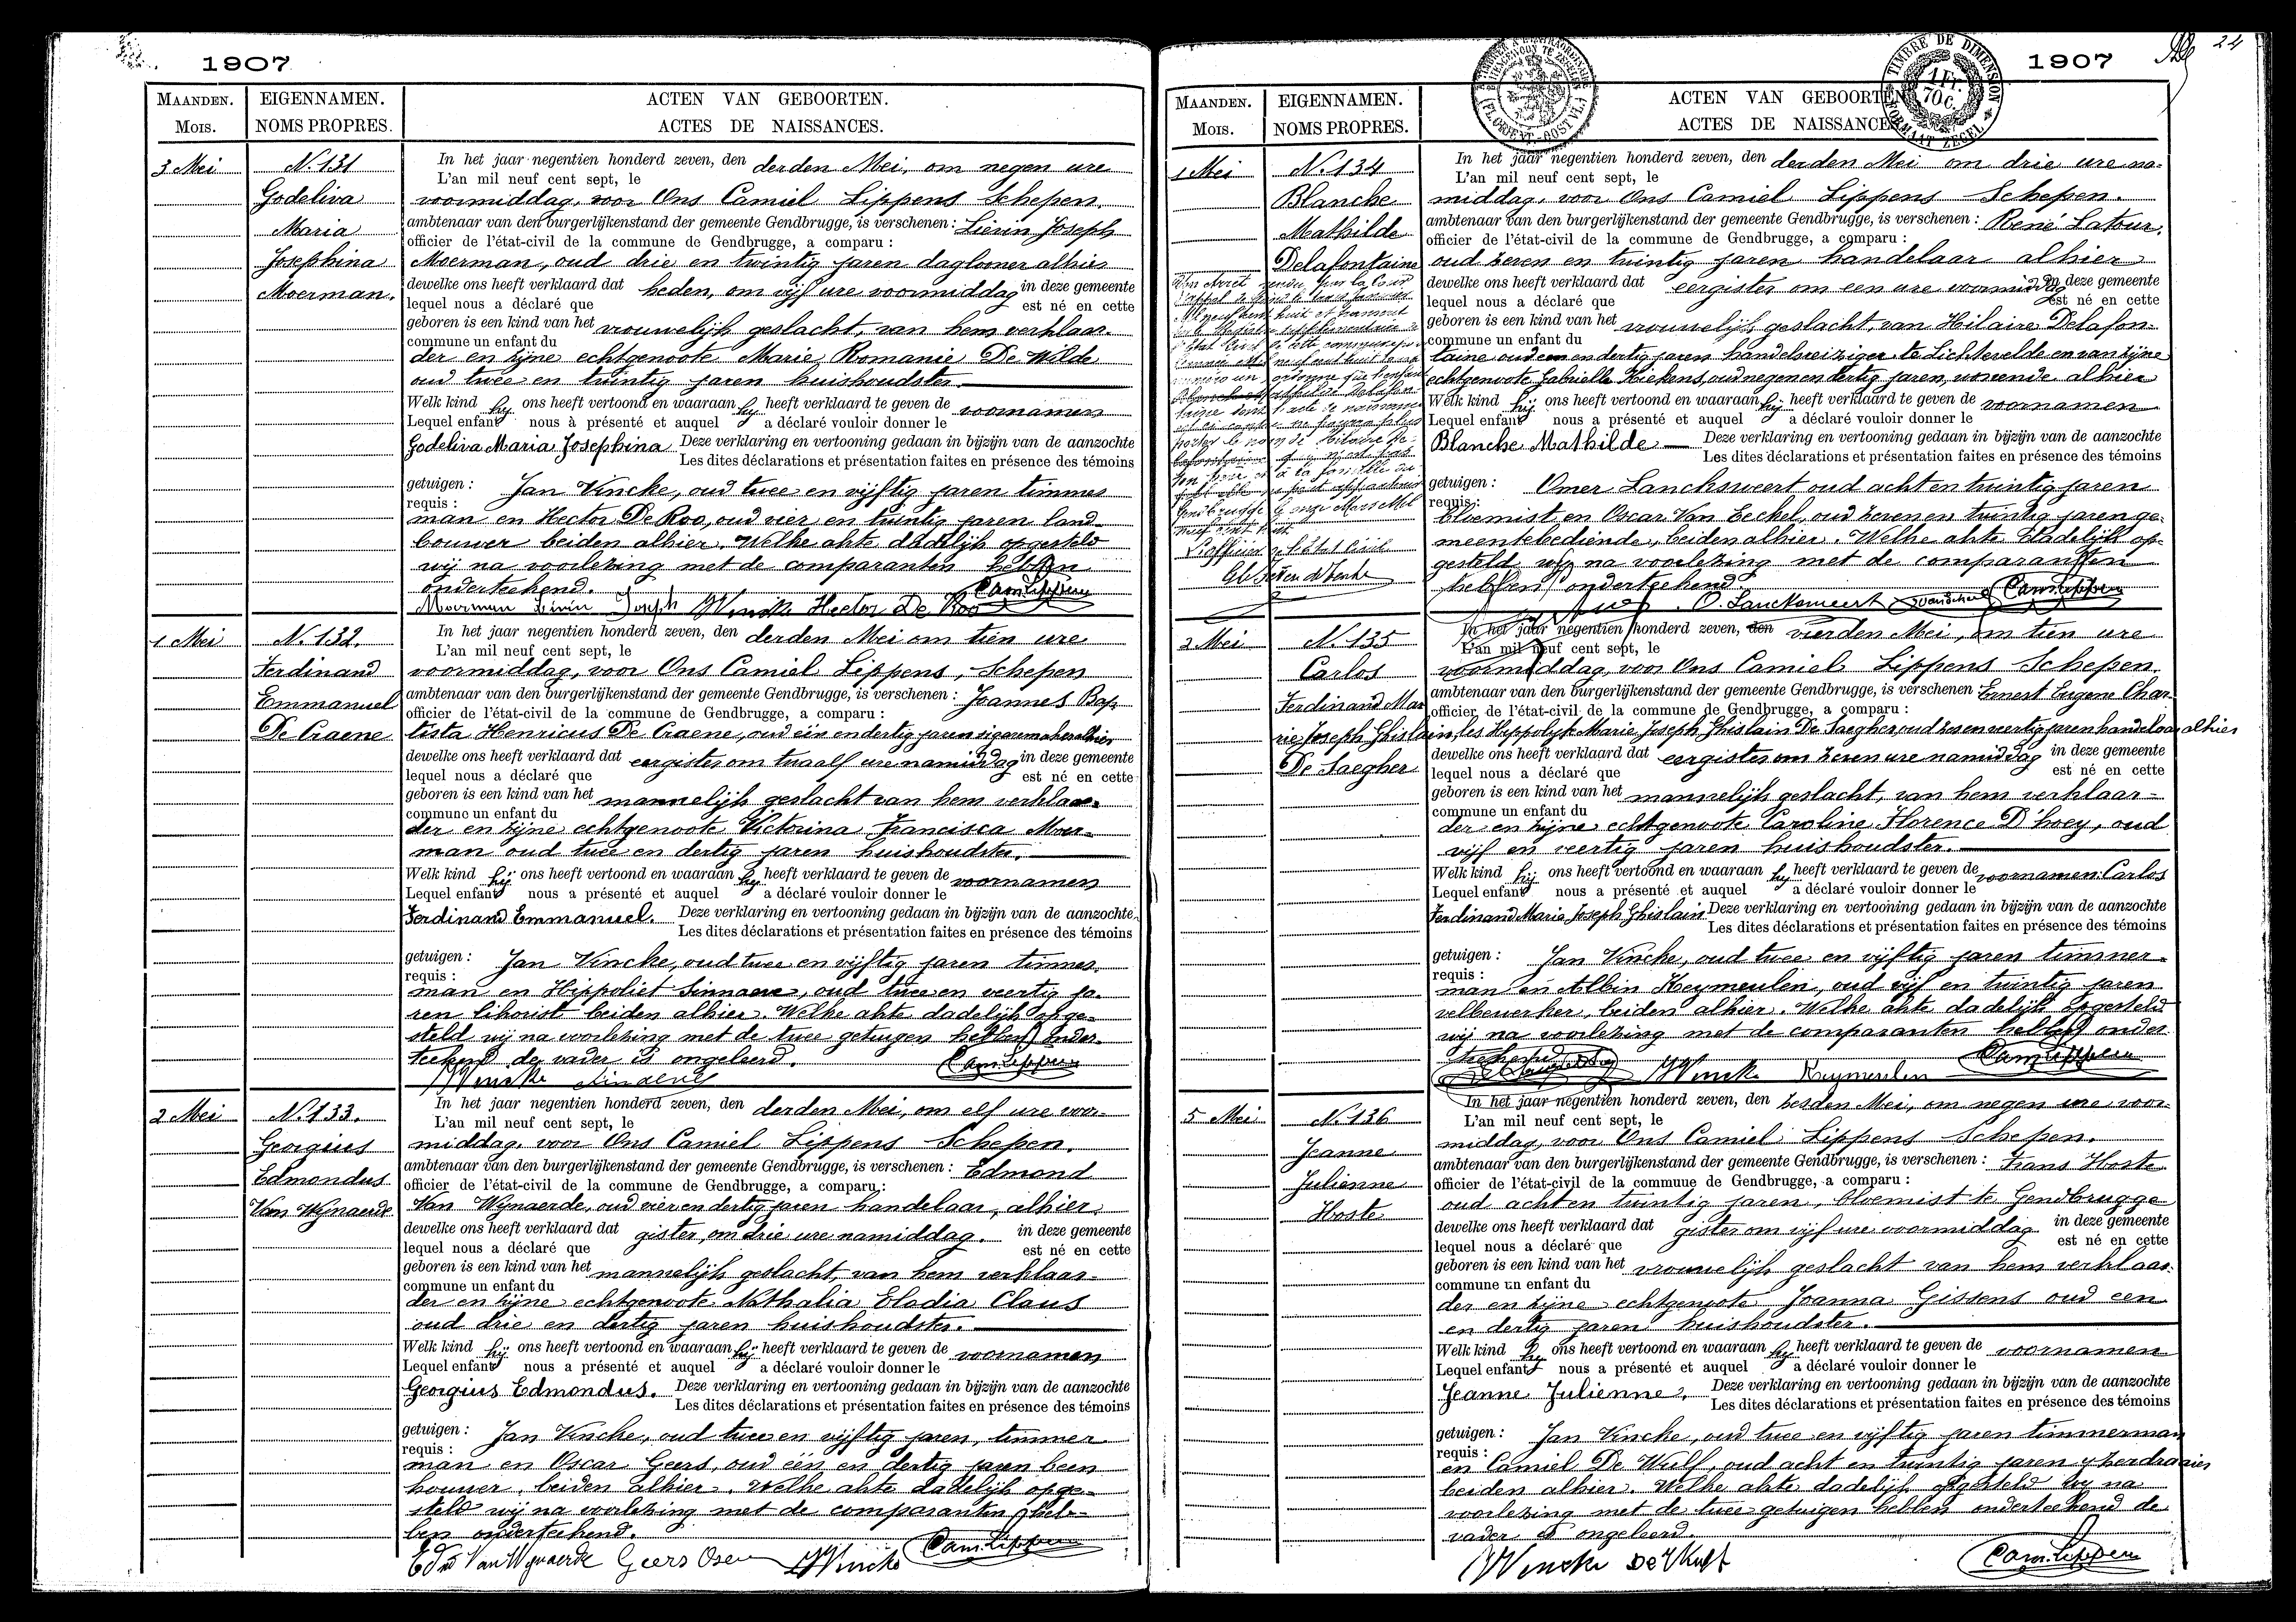 1907
MAANDEN.
Mois.
EIGENNAMEN.
NOMS PROPRES.
ACTEN VAN GEBOORTEN.
ACTES DE NAISSANCES.
3 Mei
N. 131
Godeliva
Maria
Josephina
Moerman.
In het jaar negentien honderd zeven, den derden Mei, om negen ure
L'an mil neuf cent sept, le
voormiddag, voor Ons Camiel Lippens Schepen.
ambtenaar van den burgerlijkenstand der gemeente Gendbrugge, is verschenen: Livin Joseph
officier de l'état-civil de la commune de Gendbrugge, a comparu:
Moerman, oud drie en twintig jaren daglooner alhier
dewelke ons heeft verklaard dat heden, om vijf ure voormiddag in deze gemeente
lequel nous a déclaré que est né en cette
geboren is een kind van het vrouwelijk geslacht, van hem verklaar-
commune un enfant du
der en zijne echtgenoote Marie Romanie De Wilde
oud twee en twintig jaren huishoudster.
Welk kind hij ons heeft vertoond en waaraan hij heeft verklaard te geven de voornamen
Lequel enfant nous à présenté et auquel a déclaré vouloir donner le
Godeliva Maria Josephina Deze verklaring en vertooning gedaan in bijzijn van de aanzochte
Les dites déclarations et présentation faites en présence des témoins
getuigen: Jan Vincke, oud twee en vijftig jaren timmer
requis:
man en Hector De Roo, oud vier en twintig jaren land-
bouwer beiden alhier. Welke akte dadelijk opgesteld
wij na voorlezing met de comparanten hebben
onderteekend. Cam Lippens
Moerman Livin Joseph JVincke Hector De Roo
1 Mei
N. 132.
Ferdinand
Emmanuel
De Craene
In het jaar negentien honderd zeven, den derden Mei om tien ure
L'an mil neuf cent sept, le
voormiddag, voor Ons Camiel Lippens, Schepen
ambtenaar van den burgerlijkenstand der gemeente Gendbrugge, is verschenen: Joannes Bap-
officier de l'état-civil de la commune de Gendbrugge, a comparu:
tista Henricus De Craene, oud één en dertig jaren sigarenmaker alhier
dewelke ons heeft verklaard dat eergister om twaalf ure namiddag in deze gemeente
lequel nous a déclaré que est né en cette
geboren is een kind van het mannelijk geslacht van hem verklaar-
commune un enfant du
der en zijne echtgenoote Victorina Francisca Moer-
man oud twee en dertig jaren huishoudster.
Welk kind hij ons heeft vertoond en waaraan hij heeft verklaard te geven de voornamen
Lequel enfant nous a présenté et auquel a déclaré vouloir donner le
Ferdinand Emmanuel. Deze verklaring en vertooning gedaan in bijzijn van de aanzochte
Les dites déclarations et présentation faites en présence des témoins
getuigen: Jan Vincke, oud twee en vijftig jaren timmer-
requis:
man en Hippoliet Sinnaeve, oud twee en veertig ja-
ren likorist beiden alhier. Welke akte dadelijk opge-
steld wij na voorlezing met de twee getuigen hebben onder-
teekend de vader is ongeleerd. Cam Lippens
JVincke
2 Mei
N. 133.
Georgius
Edmondus
Van Wijnaerde
In het jaar negentien honderd zeven, den derden Mei, om elf ure voor-
L'an mil neuf cent sept, le
middag, voor Ons Camiel Lippens Schepen.
ambtenaar van den burgerlijkenstand der gemeente Gendbrugge, is verschenen: Edmond
officier de l'état-civil de la commune de Gendbrugge, a comparu:
Van Wijnaerde, oud vier en dertig jaren handelaar, alhier.
dewelke ons heeft verklaard dat gister, om drie ure namiddag. in deze gemeente
lequel nous a déclaré que est né en cette
geboren is een kind van het mannelijk geslacht, van hem verklaar-
commune un enfant du
der en zijne echtgenoote Nathalia Elodia Claus
oud drie en dertig jaren huishoudster.
Welk kind hij ons heeft vertoond en waaraan hij heeft verklaard te geven de voornamen
Lequel enfant nous a présenté et auquel a déclaré vouloir donner le
Georgius Edmondus. Deze verklaring en vertooning gedaan in bijzijn van de aanzochte
Les dites déclarations et présentation faites en présence des témoins
getuigen: Jan Vincke, oud twee en vijftig jaren, timmer
requis:
man en Oscar Geers, oud één en dertig jaren been
houwer, beiden alhier. Welke akte dadelijk opge-
steld wij na voorlezing met de comparanten heb-
ben onderteekend. Cam Lippens
Edmd Van Wynaerde Geers Oscar JVincke
24
1907
TIMBRE DE DIMENSION
1 Fr.
70 C.
FORMAAT ZEGEL
MAANDEN.
Mois.
EIGENNAMEN.
NOMS PROPRES.
ACTEN VAN GEBOORTEN
ACTES DE NAISSANCES
1 Mei
N. 134
Blanche
Mathilde
Delafontaine
L'officier de l'état civil
In het jaar negentien honderd zeven, den derden Mei om drie ure na-
L'an mil neuf cent sept, le
middag, voor Ons Camiel Lippens Schepen.
ambtenaar van den burgerlijkenstand der gemeente Gendbrugge, is verschenen: René Latour,
officier de l'état-civil de la commune de Gendbrugge, a comparu:
oud zeven en twintig jaren handelaar alhier
dewelke ons heeft verklaard dat eergister om een ure voormiddag in deze gemeente
lequel nous a déclaré que est né en cette
geboren is een kind van het vrouwelijk geslacht, van Hilaire Delafon-
commune un enfant du
taine oud een en dertig jaren handelsreiziger te Lichtervelde en van zijne
echtgenoote Gabrielle Kiekens, oud negen en dertig jaren, wonende alhier
Welk kind hij ons heeft vertoond en waaraan hij heeft verklaard te geven de voornamen
Lequel enfant nous a présenté et auquel a déclaré vouloir donner le
Blanche Mathilde Deze verklaring en vertooning gedaan in bijzijn van de aanzochte
Les dites déclarations et présentation faites en présence des témoins
getuigen: Omer Lanckswert oud acht en twintig jaren
requis:
bloemist en Oscar Van Eeckel, oud zeven en twintig jaren ge-
meentebediende, beiden alhier. Welke akte dadelijk op-
gesteld wij na voorlezing met de comparanten
hebben onderteekend.
O. Lancksweert Cam Lippens
2 Mei
N. 135
Carlos
Ferdinand Ma-
rie Joseph Ghislain
De Saegher
In het jaar negentien honderd zeven, den vierden Mei, om tien ure
L'an mil neuf cent sept, le
voormiddag, voor Ons Camiel Lippens Schepen.
ambtenaar van den burgerlijkenstand der gemeente Gendbrugge, is verschenen Ernest Eugene Char-
officier de l'état-civil de la commune de Gendbrugge, a comparu:
les Hippolyte Marie Joseph Ghislain De Saegher oud zes en veertig jaren handelaar alhier
dewelke ons heeft verklaard dat eergister om zeven ure namiddag in deze gemeente
lequel nous a déclaré que est né en cette
geboren is een kind van het mannelijk geslacht, van hem verklaar-
commune un enfant du
der en zijne echtgenoote Caroline Florence D'hoey, oud
vijf en veertig jaren huishoudster.
Welk kind hij ons heeft vertoond en waaraan hij heeft verklaard te geven de voornamen: Carlos
Lequel enfant nous a présenté et auquel a déclaré vouloir donner le
Ferdinand Marie Joseph Ghislain Deze verklaring en vertooning gedaan in bijzijn van de aanzochte
Les dites déclarations et présentation faites en présence des témoins
getuigen: Jan Vincke, oud twee en vijftig jaren timmer-
requis:
man en Albin Keymeulen, oud vijf en twintig jaren
velbewerker, beiden alhier. Welke akte dadelijk opgesteld
wij na voorlezing met de comparanten hebben onder-
teekend Cam Lippens
JVincke Keymeulen
5 Mei
N. 136
Jeanne
Julienne
Hoste
In het jaar negentien honderd zeven, den zesden Mei, om negen ure voor-
L'an mil neuf cent sept, le
middag, voor Ons Camiel Lippens Schepen.
ambtenaar van den burgerlijkenstand der gemeente Gendbrugge, is verschenen: Frans Hoste
officier de l'état-civil de la commune de Gendbrugge, a comparu:
oud acht en twintig jaren, bloemist te Gendbrugge
dewelke ons heeft verklaard dat gister om vijf ure voormiddag in deze gemeente
lequel nous a déclaré que est né en cette
geboren is een kind van het vrouwelijk geslacht van hem verklaar-
commune un enfant du
der en zijne echtgenoote Joanna Gissens oud een
en dertig jaren huishoudster.
Welk kind hij ons heeft vertoond en waaraan hij heeft verklaard te geven de voornamen
Lequel enfant nous a présenté et auquel a déclaré vouloir donner le
Jeanne Julienne. Deze verklaring en vertooning gedaan in bijzijn van de aanzochte
Les dites déclarations et présentation faites en présence des témoins
getuigen: Jan Vincke, oud twee en vijftig jaren timmerman
requis:
en Camiel De Wulf, oud acht en twintig jaren yzerdraaier
beiden alhier. Welke akte dadelijk opgesteld wij na
voorlezing met de twee getuigen hebben onderteekend de
vader is ongeleerd.
JVincke De Wulf Cam Lippens